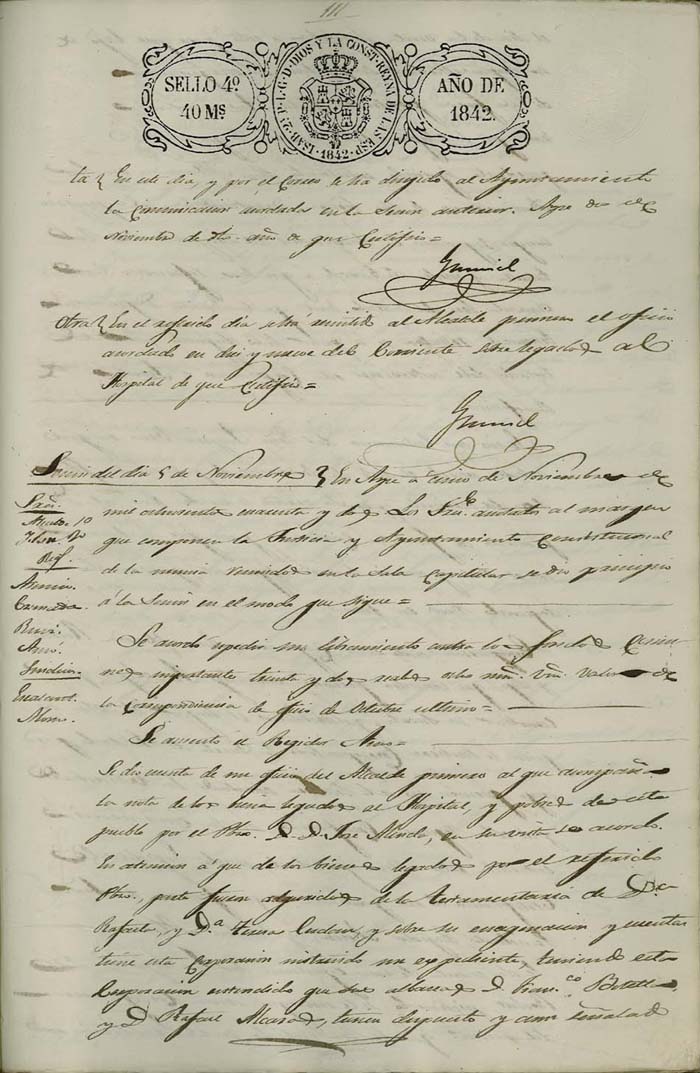 111
SELLO 4º
40 Ms
ISAB. 2ª P. L. G. D. DIOS Y LA CONST. REYNA DE LAS ESP.
1842
AÑO DE
1842.
En este dia y por el Correo se ha dirigido al Ayuntamiento
la Comunicacion acordada en la Sesion anterior.
Noviembre de año de que Certifico=
Otra} En el referido dia se ha al Alcalde primero el oficio
acordado en diez y nueve del Corriente sobre legados al
Hospital de que Certifico=
Sesion del dia 5 de Noviembre} En Aspe a cinco de Noviembre de
mil ochocientos cuarenta y dos Los Sres. anotados al margen
que componen la Justicia y Ayuntamiento Constitucional
de la misma reunidos en la Sala Capitular se dio principio
á la Sesion en el modo que sigue=
Sres.
Alcalde 1º
Regs.
Almira
Cremades
Sindico.
Se acordó expedir un libramiento contra los fondos
importante treinta y dos reales ocho mrs. vn. valor de
la Correspondencia de oficio de Octubre ultimo=
Se ausentó el Regidor
Se dio cuenta de un oficio del Alcalde primero al que acompaña
la nota de los bienes legados al Hospital, y pobres de este
pueblo por el Pbro. D. D. Jose en su vista se acordó.
En atencion á que de los bienes legados por el referido
Pbro., parte fueron adquiridos de la testamentaria de D.ª
Rafaela, y D.ª Teresa y sobre su enagenacion y cuentas
tiene esta Corporacion instruido un expediente, teniendo esta
Corporacion entendido que los albaceas D. Fran.co
y D. Rafael Alcaraz, tienen dispuesto y aun señalado